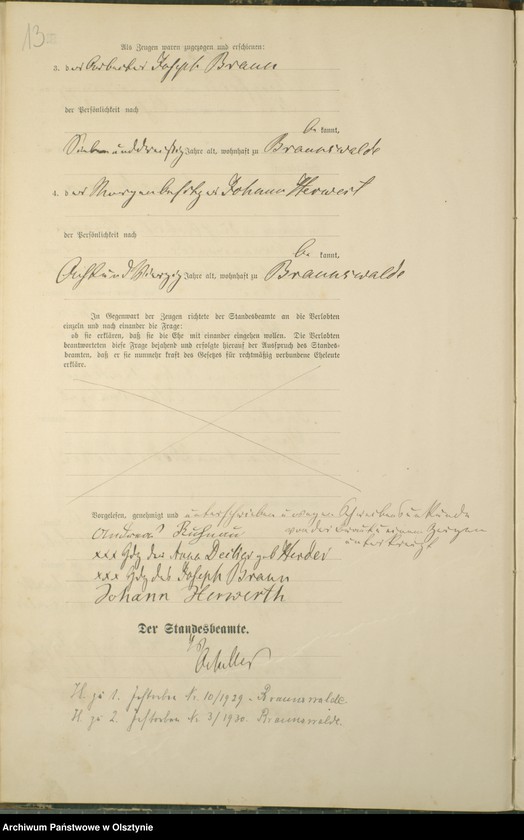 13
Als Zeugen waren zugezogen und erschienen:
3. der Arbeiter Joseph Braun
der Persönlichkeit nach
be kannt,
Siebenunddreißig Jahre alt, wohnhaft zu Braunswalde
4. der Morgenbesitzer Johann Herwert
der Persönlichkeit nach
be kannt,
Achtundvierzig Jahre alt, wohnhaft zu Braunswalde
In Gegenwart der Zeugen richtete der Standesbeamte an die Verlobten
einzeln und nach einander die Frage:
ob sie erklären, daß sie die Ehe mit einander eingehen wollen. Die Verlobten
beantworteten diese Frage bejahend und erfolgte hierauf der Ausspruch des Standes-
beamten, daß er sie nunmehr kraft des Gesetzes für rechtmäßig verbundene Eheleute
erkläre.
Vorgelesen, genehmigt und unterschrieben u wegen Schreibensunkunde
von der Braut u einem Zeugen
unterkreuzt
Andreas Kuhnau
xxx Hdz der Anna geb Herder
xxx Hdz des Joseph Braun
Johann Herwerth
Der Standesbeamte.
H. zu 1. Gestorben Nr. 10/1929 - Braunswalde.
H. zu 2. Gestorben Nr. 3/1930. Braunswalde.
Archiwum Państwowe w Olsztynie